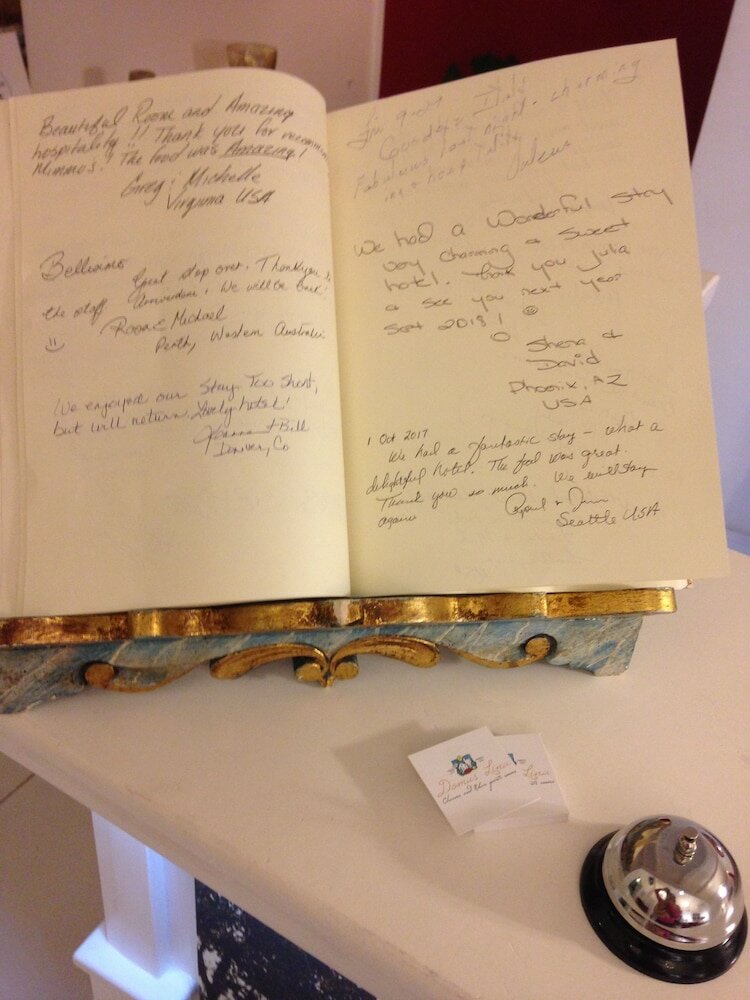 Beautiful Room and Amazing
hospitality!! Thank you for recommen
Mimmos! The food was Amazing!
Greg & Michelle
Virginia USA
Bellisimo
Great stop over. Thank you to
the staff. We will be back!
Michael
Perth, Western Australia
We enjoyed our stay. Too Short,
but will return. Lovely hotel!
& Bill
Denver, Co
Fri 9-29
Fabulous last night - charming
We had a Wonderful Stay
Very Charming & Sweet
hotel. Thank you Julia
& see you next year
Sept 2018!
Shena &
David
Phoenix, AZ
USA
1 Oct 2017
We had a fantastic stay - what a
delightful hotel. The food was great.
Thank you so much. We will stay
again
& Jim
Seattle USA
Domus Lina
Lina